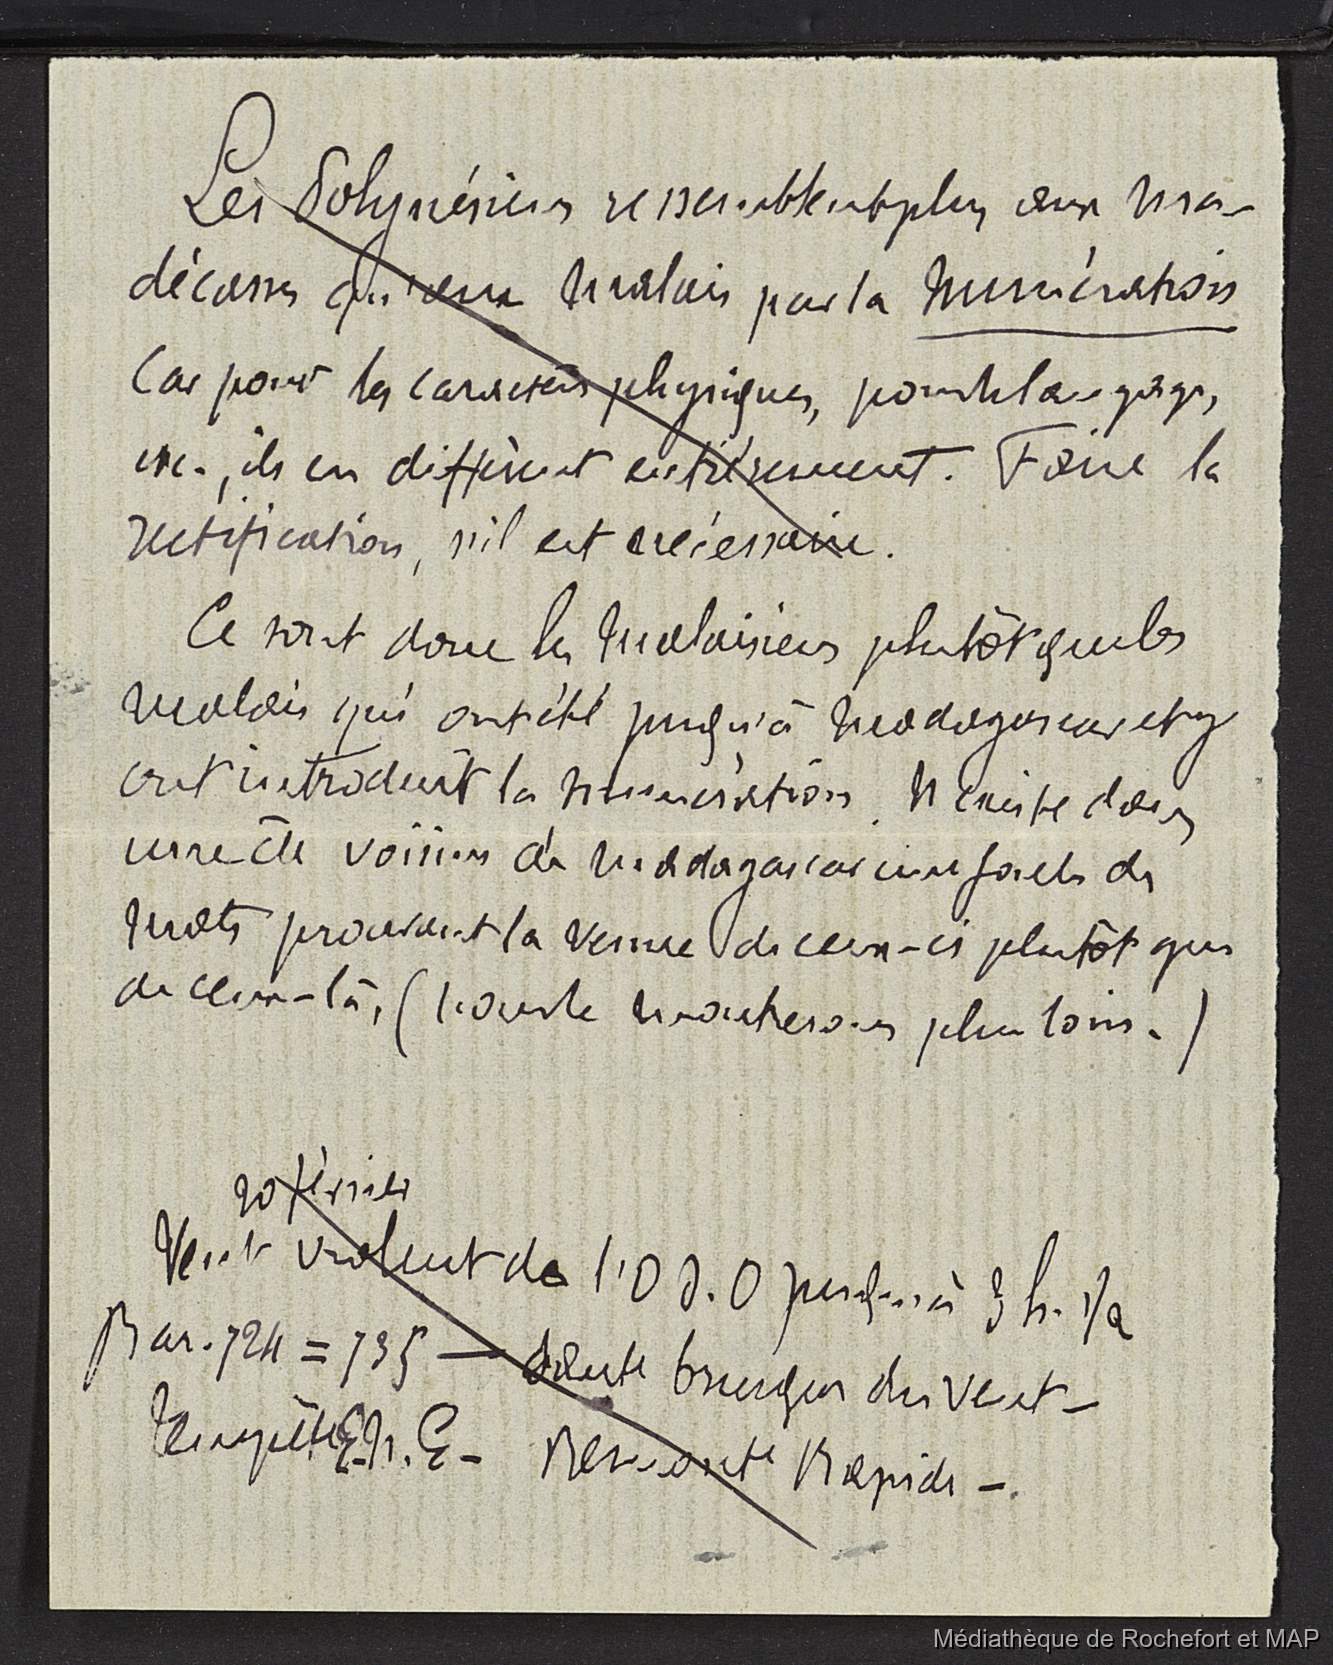 Les Polynésiens ressemblent plus aux Ma-
décasses qu'aux Malais par la Numération
Car pour les caractères physiques, pour le langage,
etc., ils en diffèrent entièrement. Faire la
rectification, s'il est nécessaire.
Ce sont donc les Malaisiens plutôt que les
Malais qui ont été jusqu'à Madagascar et y
ont introduit la numération. Il existe dans
une île voisine de Madagascar une foule de
mots prouvant la venue de ceux-ci plutôt que
de ceux-là, (nous le montrerons plus loin.)
20 février
Vent violent de l'O S.O jusqu'à 3 h. 1/2
Bar. 724 = 735 — Saute brusque du vent —
Tempête E.N.E — Remonte Rapide —.
Médiathèque de Rochefort et MAP